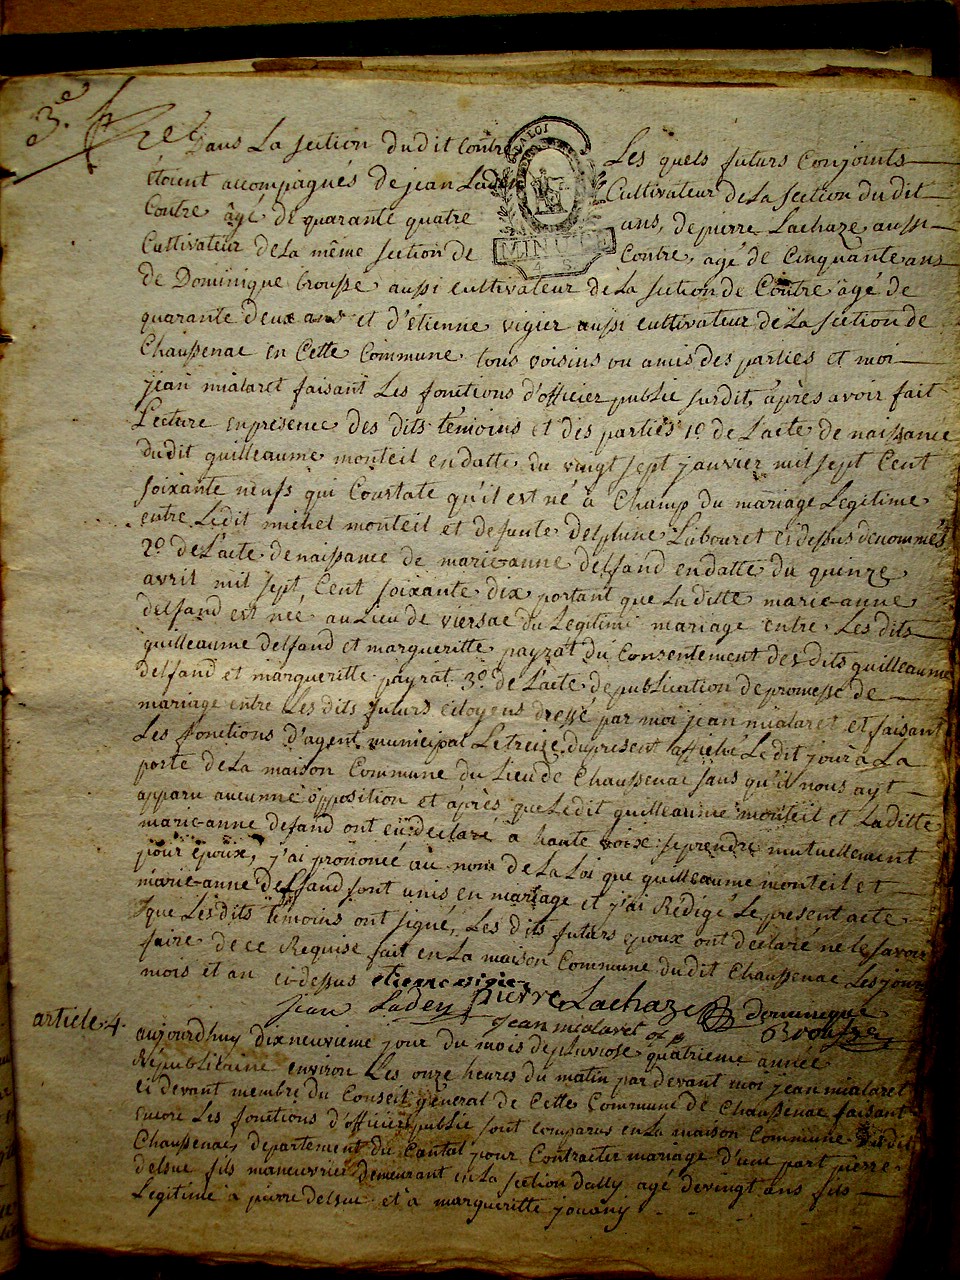 3.e
Dans La section dudit Contre Les quels futurs Conjoints
étoient accompagnés de jean Ladey Cultivateur de La section du dit
Contre âgé de quarante quatre ans, de pierre Lachaze aussi
Cultivateur de la même section de Contre, agé de Cinquante ans
LA LOI
MINUTE
de Dominique brousse aussi cultivateur de La section de Contre âgé de
quarante deux ans et d'étienne vigier aussi cultivateur de La section de
Chaussenac en Cette Commune tous voisins ou amis des parties et moi
jean mialaret faisant Les fonctions d'officier public susdit, après avoir fait
Lecture en presence des dits témoins et des parties 1o de L'acte de naissance
du dit guilleaume monteil en datte du vingt sept janvier mil sept Cent
soixante neufs qui Constate qu'il est né à Champ du mariage Legitime
entre Ledit michel monteil et defunte delphine Labouret ci dessus denommés
2o de L'acte de naissance de marie-anne delfand en datte du quinze
avril mil sept Cent soixante dix portant que La ditte marie-anne
delfand est née au Lieu de viersac du Legitime mariage entre Les dits
guilleaume delfand et margueritte payrat du Consentement des dits guilleaume
delfand et margueritte payrat 3o de L'acte de publication de promesse de
mariage entre Les dits futurs citoyens dressé par moi jean mialaret et faisant
Les fonctions d'agent municipal Le treize du present affiché Le dit jour à La
porte de La maison Commune du Lieu de Chaussenac sans qu'il nous ayt
apparu aucunne opposition et après que Ledit guilleaume monteil et Laditte
marie-anne delfand ont eû declaré a haute voix se prendre mutuellement
pour époux, j'ai prononcé au nom de La Loi que guilleaume monteil et
marie-anne delfand sont unis en mariage et j'ai Rédigé Le present acte
que Les dits témoins ont signé, Les dits futurs epoux ont déclaré ne le savoir
faire de ce Requise fait en La maison Commune du dit Chaussenac Les jour
mois et an ci-dessus etienne vigier
jean Ladey pierre Lachaze dominique
jean mialaret of p Brousse
article 4.
aujourdhuy dixneuvieme jour du mois de pluviose quatrieme année
Républicaine environ Les onze heures du matin par devant moi jean mialaret
Ci devant membre du Conseil général de Cette Commune de Chaussenac faisant
encore Les fonctions d'officier public sont comparus en La maison Commune du dit
Chaussenac, departement du Cantal pour Contracter mariage d'une part pierre
delsue fils maneuvrier demeurant en La section dally agé de vingt ans fils
Legitime à pierre delsue et à margueritte jouany